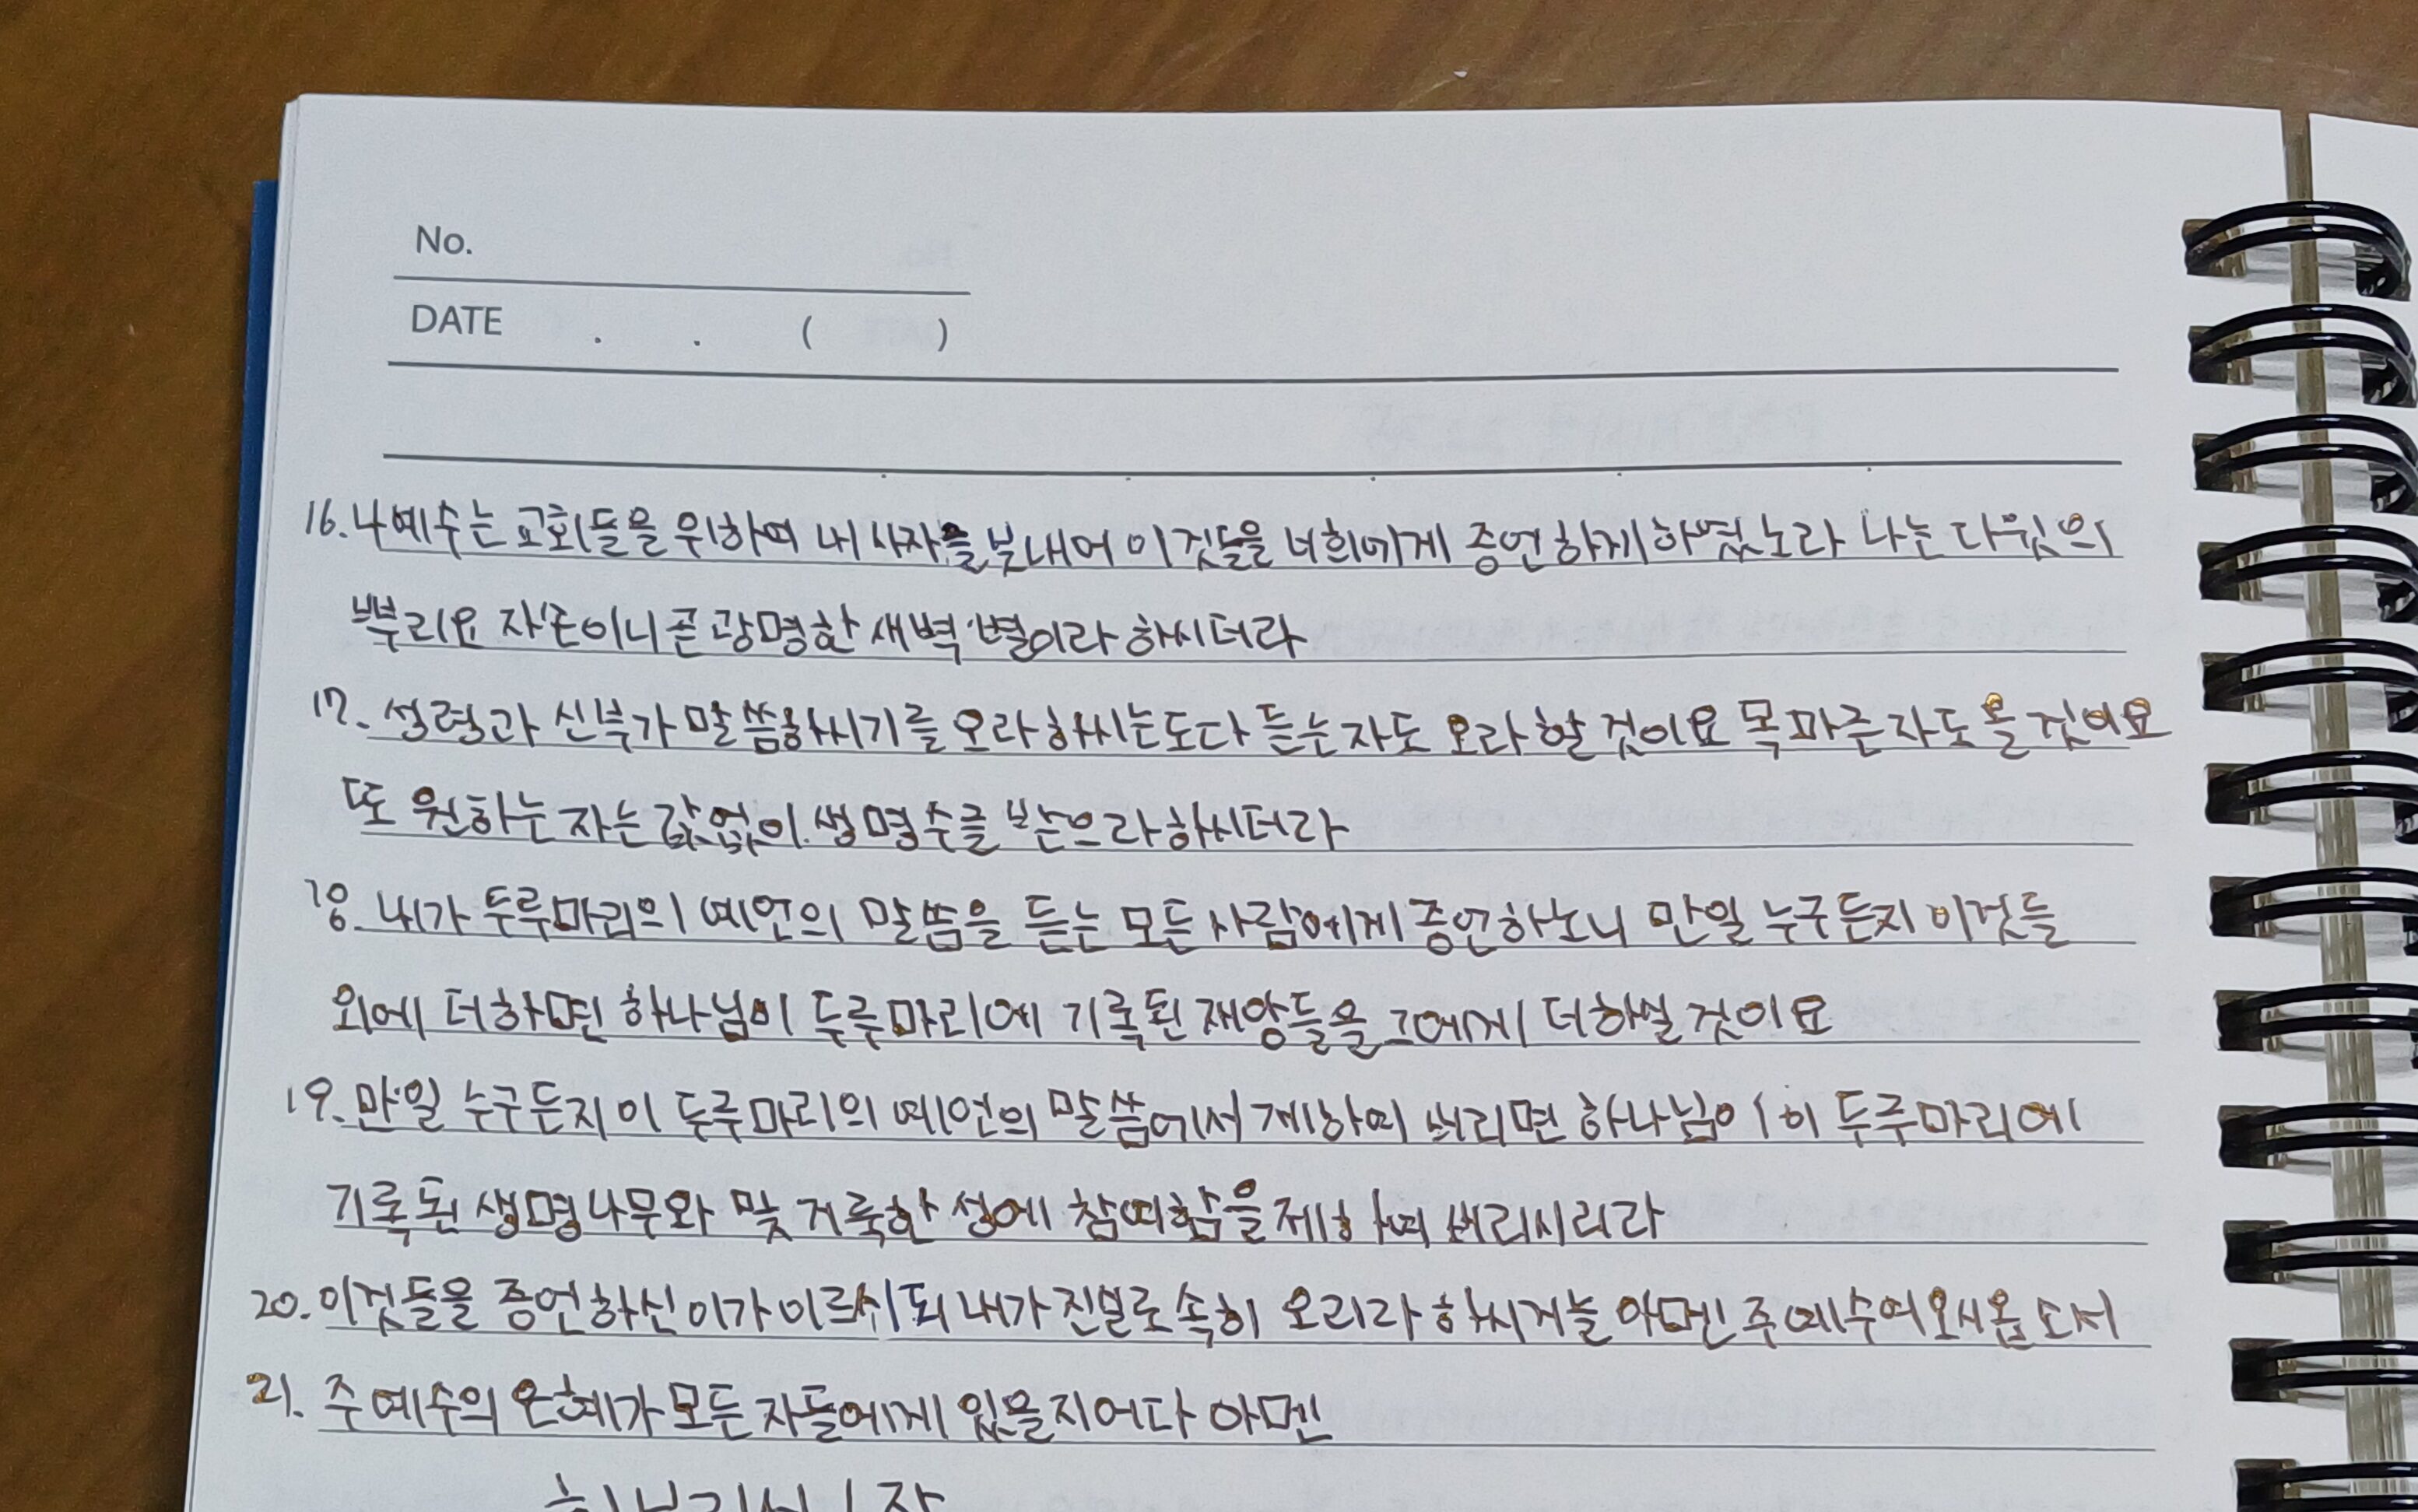 No.
DATE . . ( )
16. 나 예수는 교회들을 위하여 내 사자를 보내어 이것들을 너희에게 증언하게 하였노라 나는 다윗의
뿌리요 자손이니 곧 광명한 새벽 별이라 하시더라
17. 성령과 신부가 말씀하시기를 오라 하시는도다 듣는 자도 오라 할 것이요 목마른 자도 올 것이요
또 원하는 자는 값없이 생명수를 받으라 하시더라
18. 내가 두루마리의 예언의 말씀을 듣는 모든 사람에게 증언하노니 만일 누구든지 이것들
외에 더하면 하나님이 두루마리에 기록된 재앙들을 그에게 더하실 것이요
19. 만일 누구든지 이 두루마리의 예언의 말씀에서 제하여 버리면 하나님이 이 두루마리에
기록된 생명나무와 및 거룩한 성에 참여함을 제하여 버리시리라
20. 이것들을 증언하신 이가 이르시되 내가 진실로 속히 오리라 하시거늘 아멘 주 예수여 오시옵소서
21. 주 예수의 은혜가 모든 자들에게 있을지어다 아멘